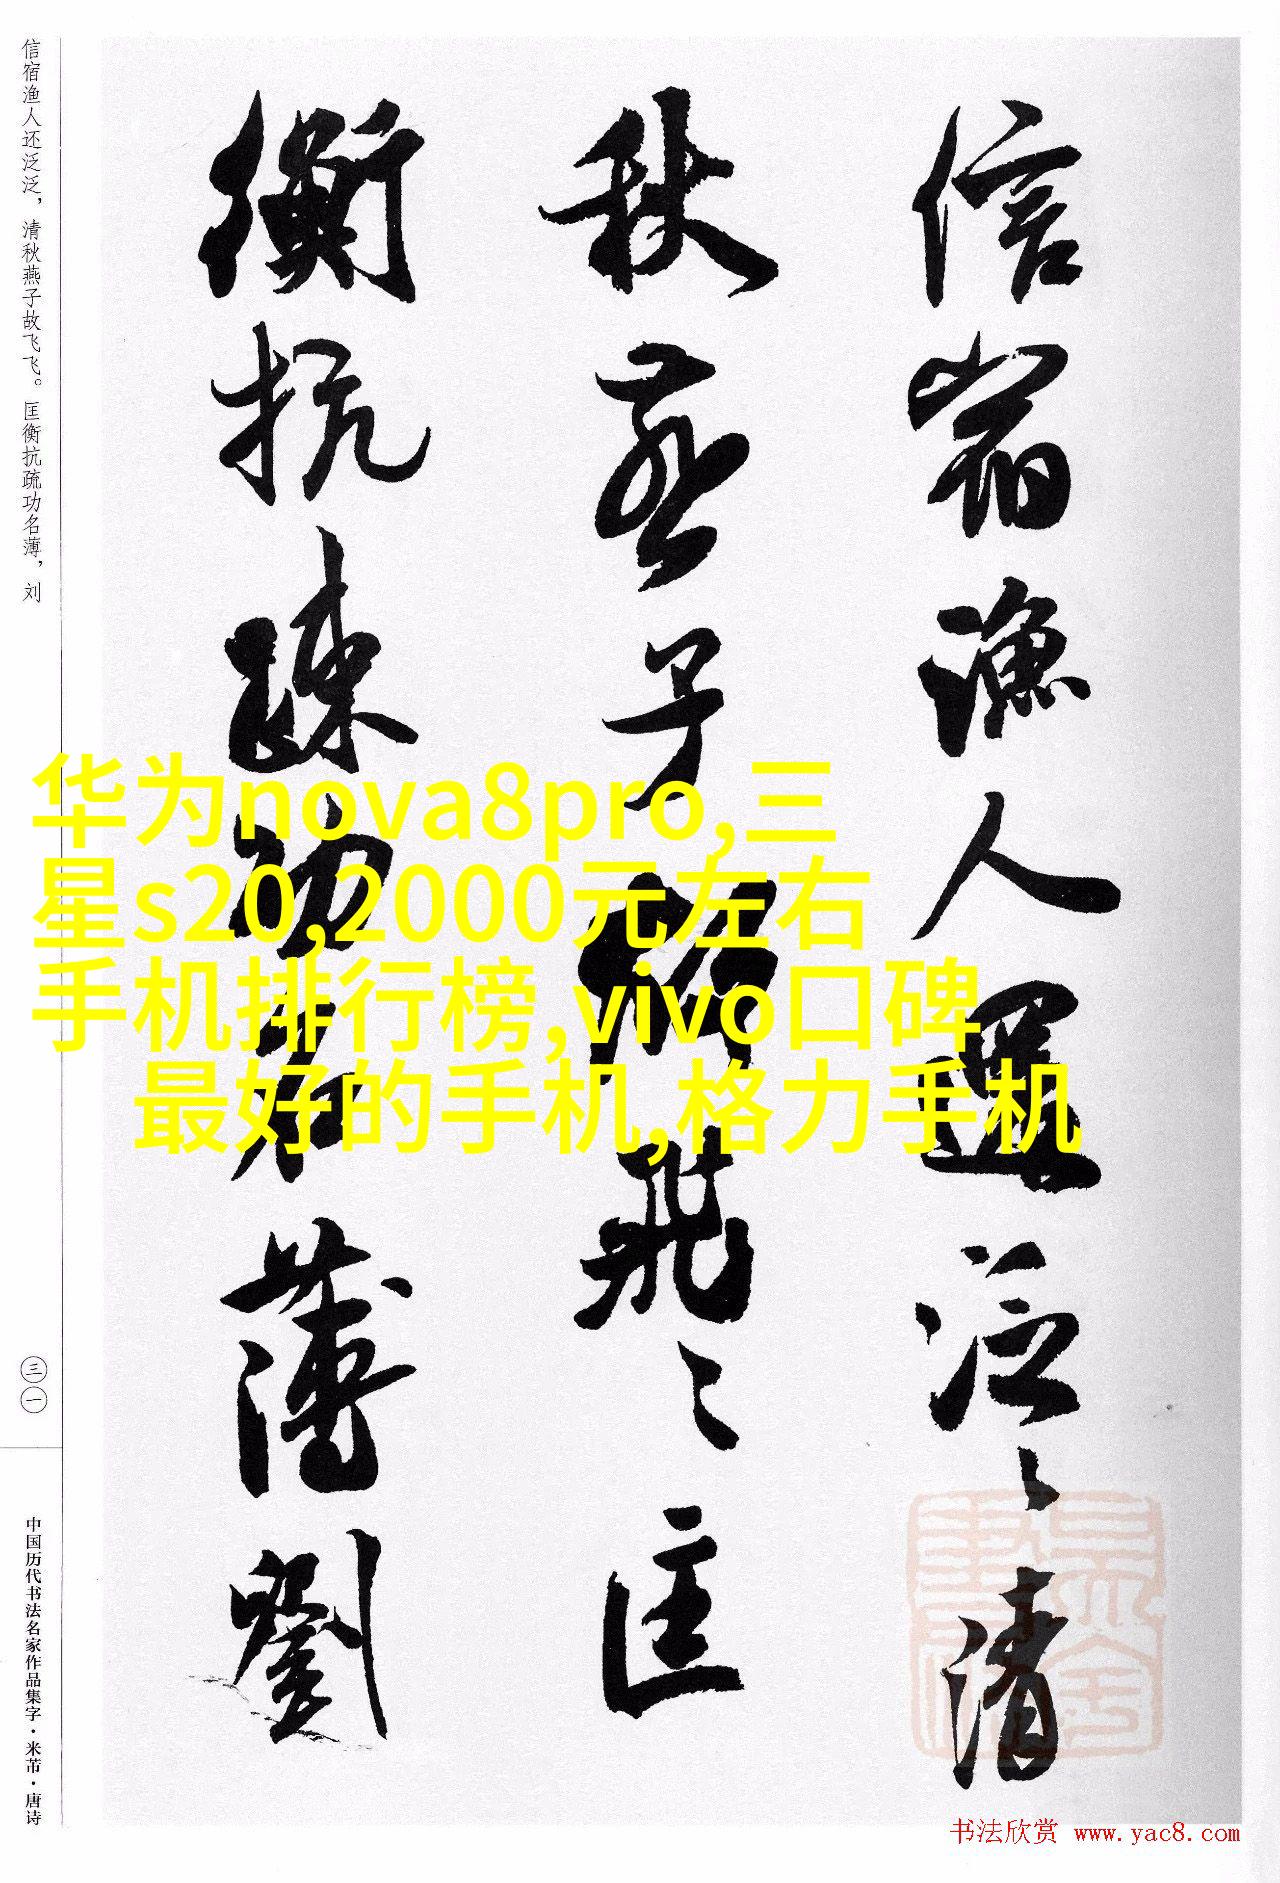 信宿渔人还泛泛，清秋燕子故飞飞。匡衡抗疏功名薄，刘
信宿漁人還泛〻清
秋燕子故飛〻匡
衡抗疏功名薄劉
华为nova8pro,三
星s20,2000元左右
手机排行榜,vivo口碑
最好的手机,格力手机
三一
中国历代书法名家作品集字·米芾·唐诗
书法欣赏 www.yac8.com